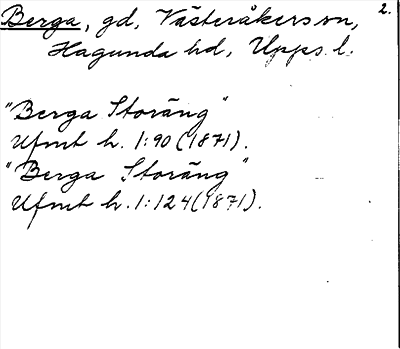 Berga, gd, Västeråkers sn, 2.
Hagunda hd, Upps. l.
"Berga Storäng"
Ufmt h. 1:90 (1871).
"Berga Storäng"
Ufmt h. 1:124 (1871).